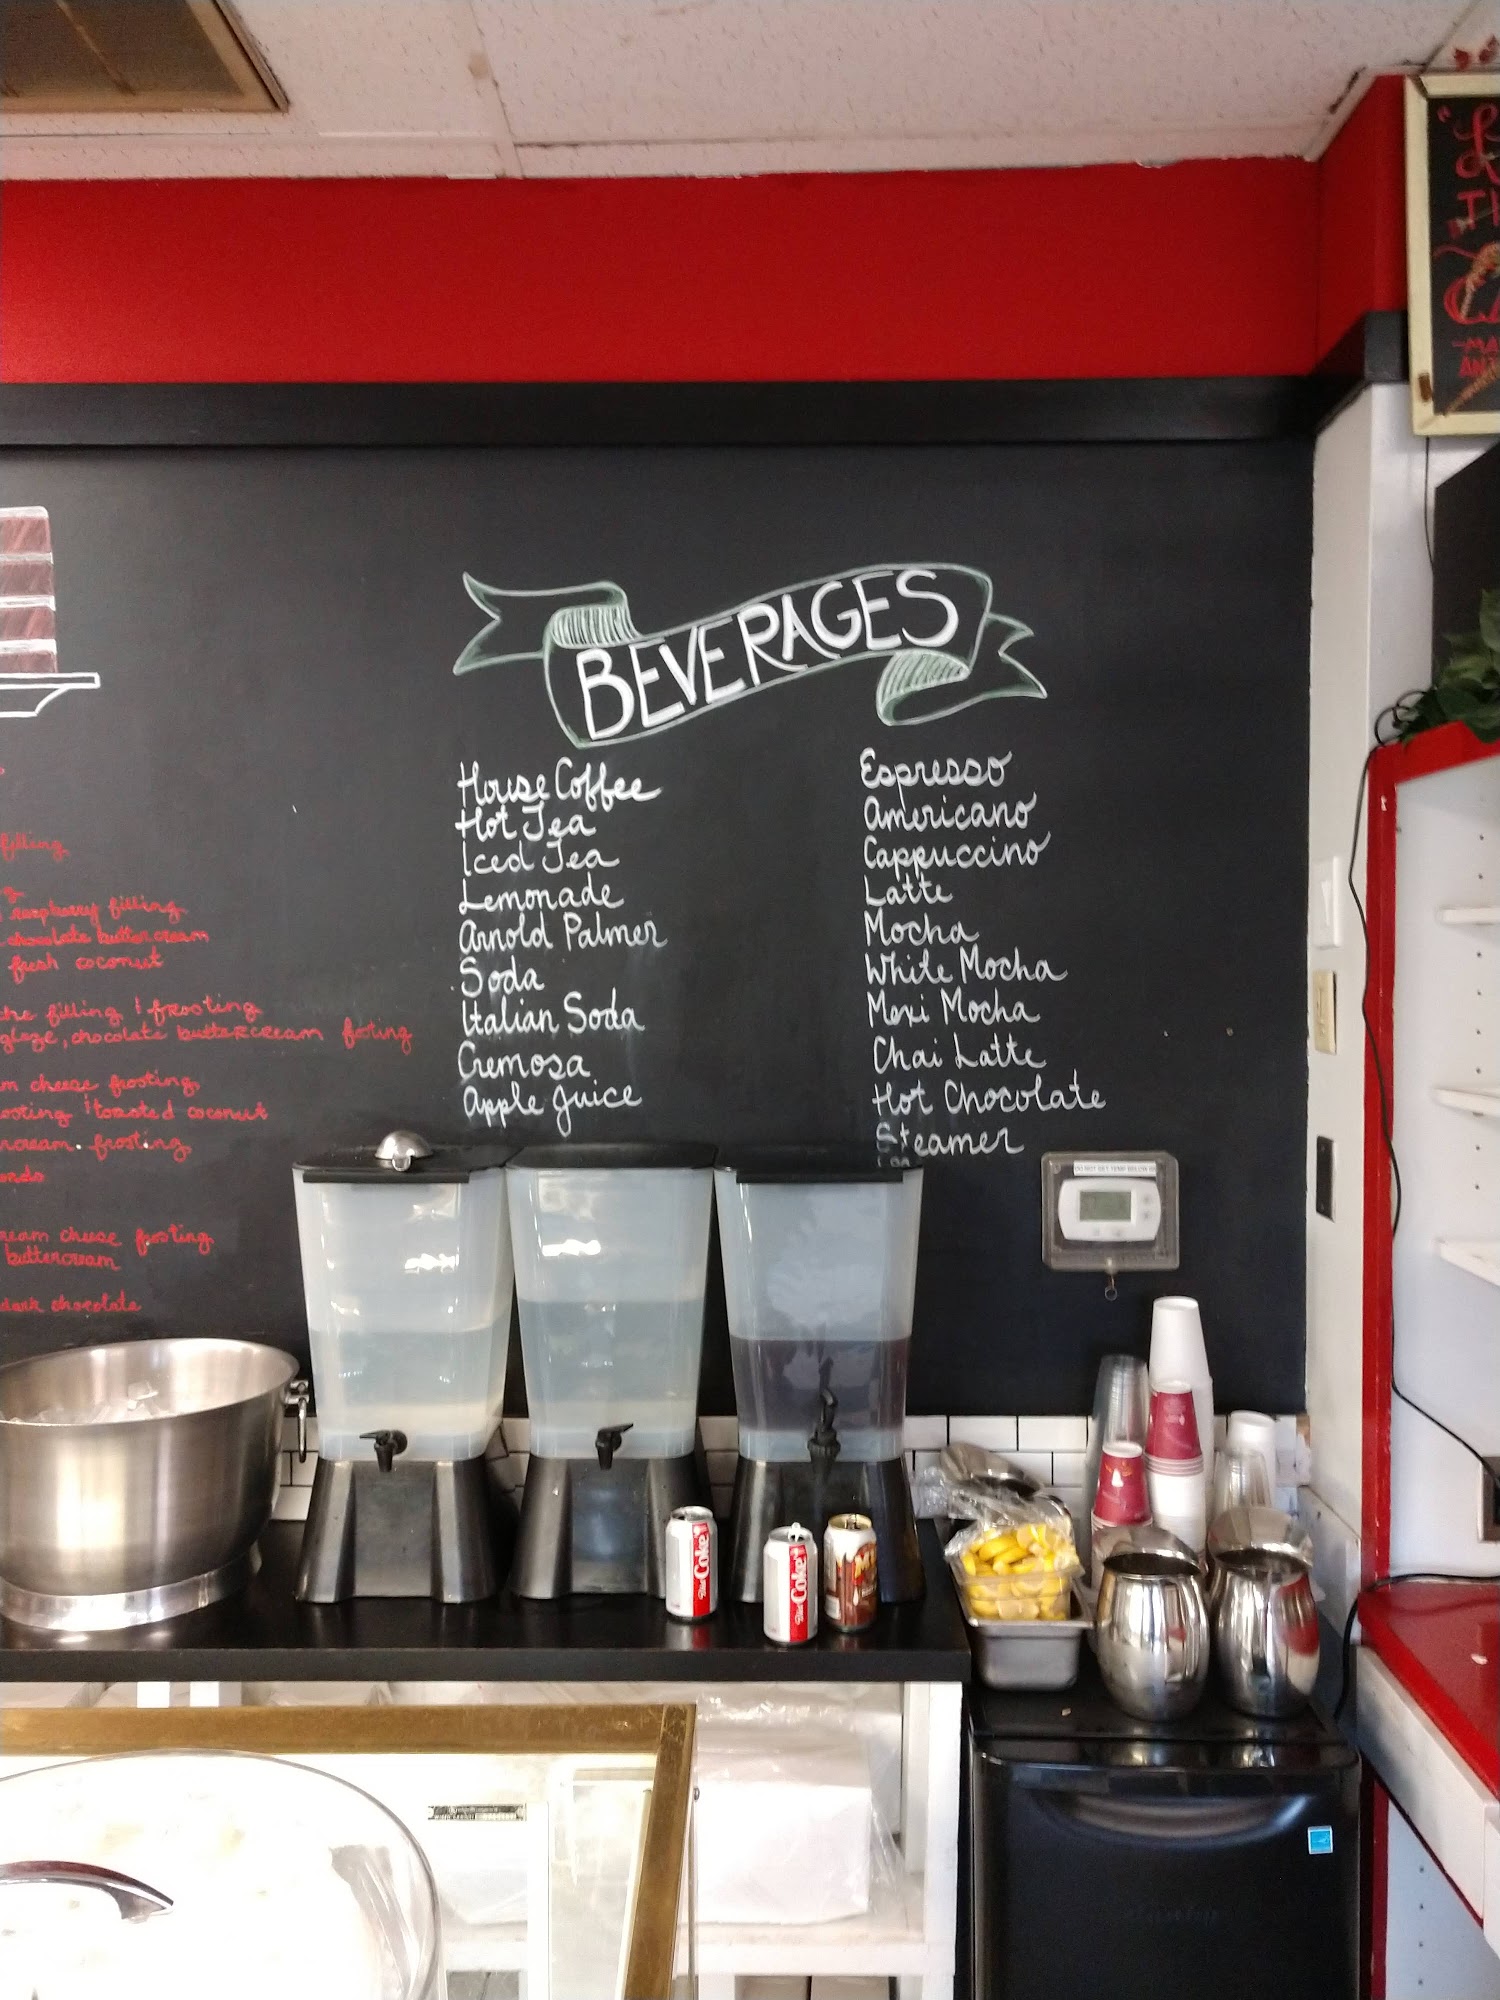 BEVERAGES
House Coffee
Hot Tea
Iced Tea
Lemonade
Arnold Palmer
Soda
Italian Soda
Cremosa
Apple Juice
Espresso
Americano
Cappuccino
Latte
Mocha
White Mocha
Mexi Mocha
Chai Latte
Hot Chocolate
Steamer
filling
raspberry filling
chocolate buttercream
fresh coconut
filling & frosting
glaze, chocolate buttercream fosting
cheese frosting
& toasted coconut
frosting
cheese frosting
buttercream
dark chocolate
DO NOT SET TEMP BELOW
Coke
Coke